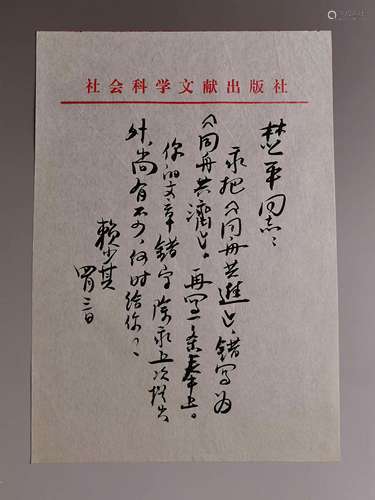 社会科学文献出版社
楚平同志：
我把《同舟共进》错写为
《同舟共济》。再写一条奉上。
你的文章错字除我上次指出
外，尚有不少，何时给你？
赖少其
四月三日